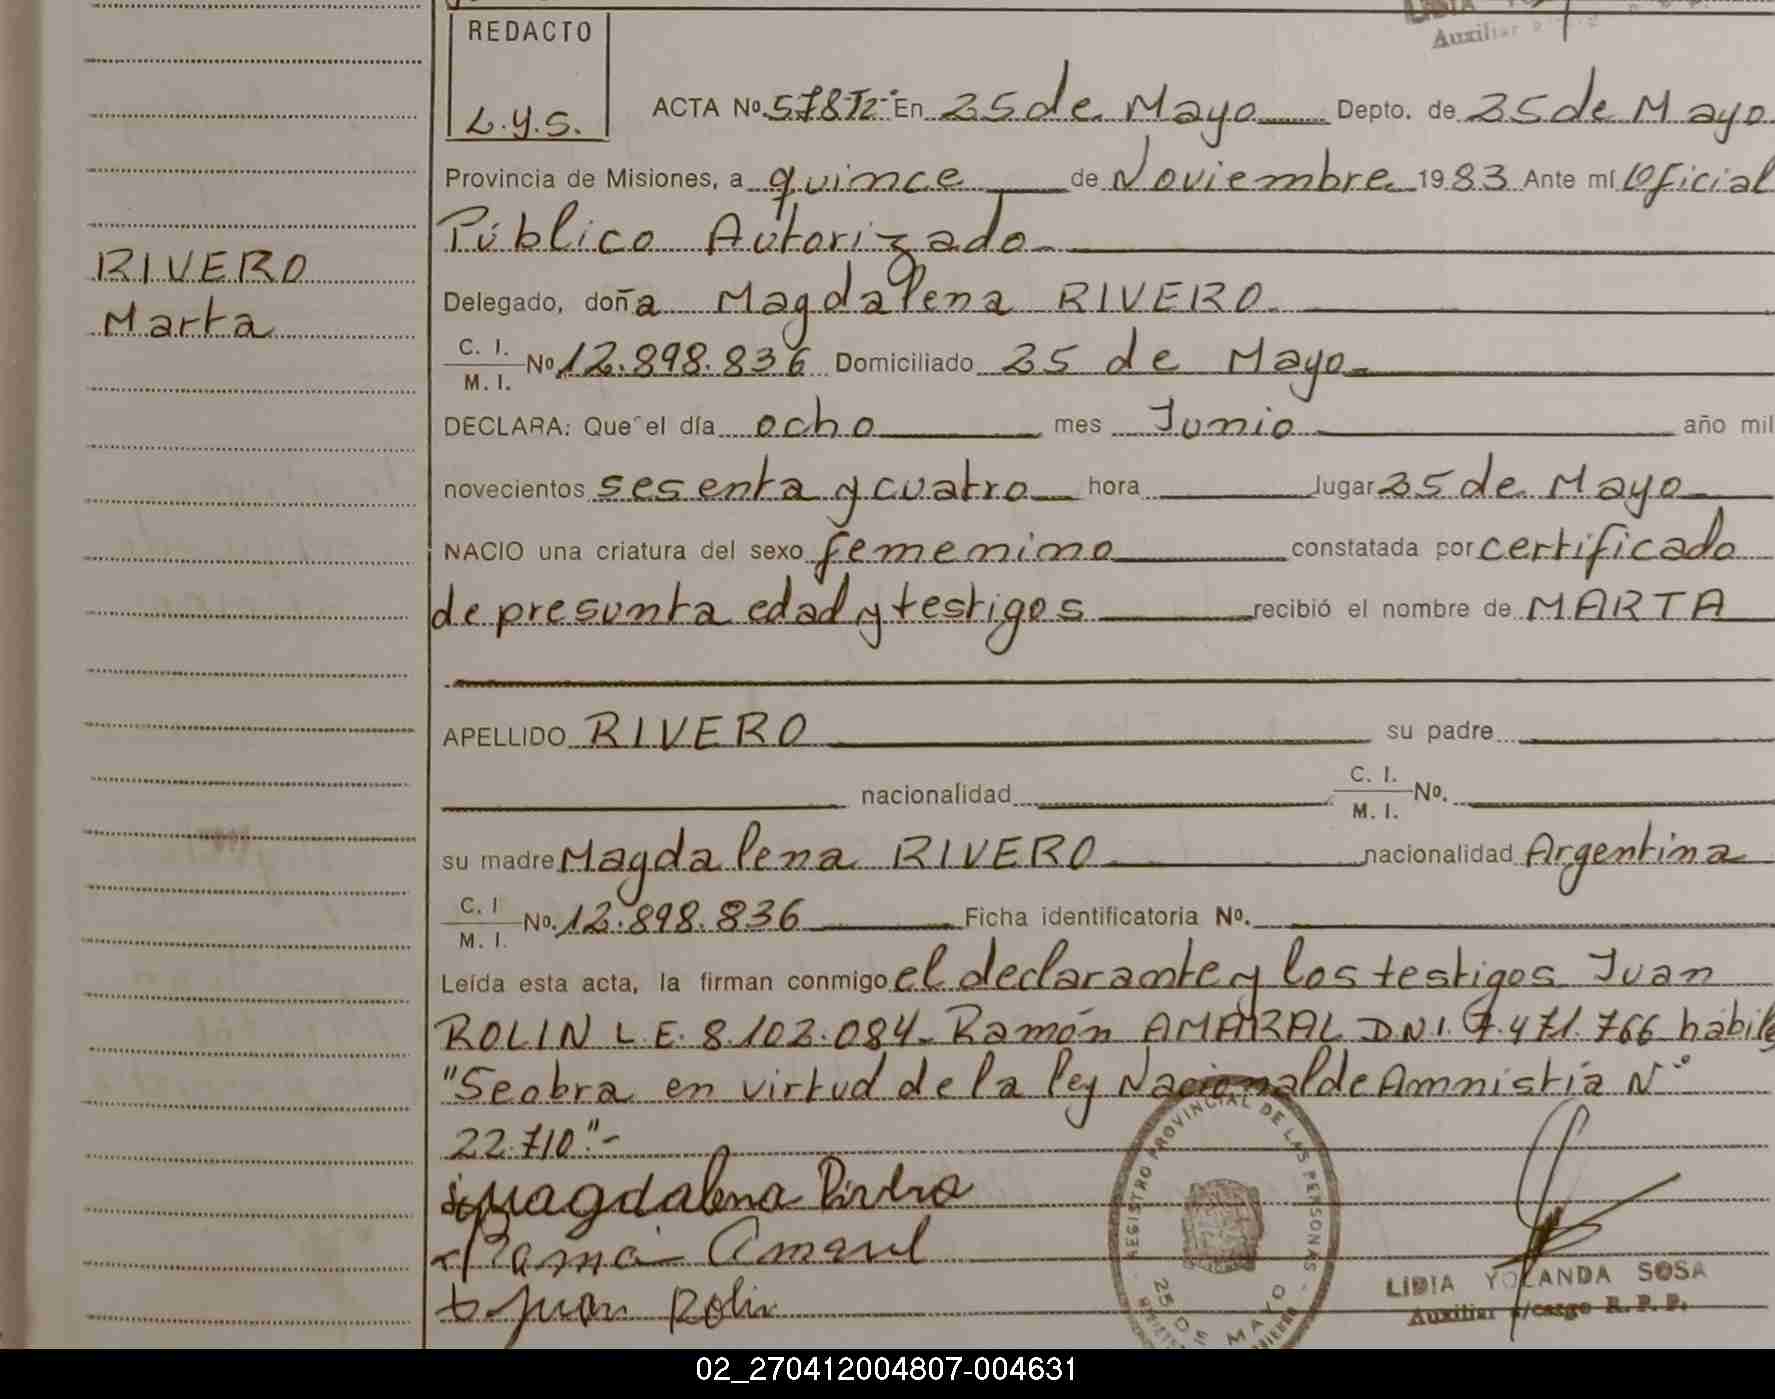 REDACTO
L.y.S.
Auxiliar
ACTA Nº 57872- En 25 de Mayo Depto. de 25 de Mayo
Provincia de Misiones, a quince de Noviembre 1983 Ante mí Oficial
Público Autorizado
RIVERO
Marta
Delegado, doña Magdalena RIVERO
C. I.
M. I. Nº 12.898.836 Domiciliado 25 de Mayo
DECLARA: Que el día ocho mes Junio año mil
novecientos sesenta y cuatro hora Jugar 25 de Mayo
NACIO una criatura del sexo femenino constatada por certificado
de presunta edad y testigos recibió el nombre de MARTA
APELLIDO RIVERO su padre
nacionalidad C. I.
M. I. Nº.
su madre Magdalena RIVERO nacionalidad Argentina
C. I
M. I. Nº. 12.898.836 Ficha identificatoria Nº.
Leída esta acta, la firman conmigo el declarante y los testigos Juan
ROLIN L E. 8.102.084. Ramón AMARAL D.N.I. 7.471.766 hábiles
"Se obra en virtud de la ley Nacional de Amnistía Nº
22.710".-
Magdalena Rivero
Ramon Amaral
Juan Rolin
REGISTRO PROVINCIAL DE LAS PERSONAS
25 DE MAYO
LIDIA YOLANDA SOSA
Auxiliar a/cargo R. P. P.
02_270412004807-004631